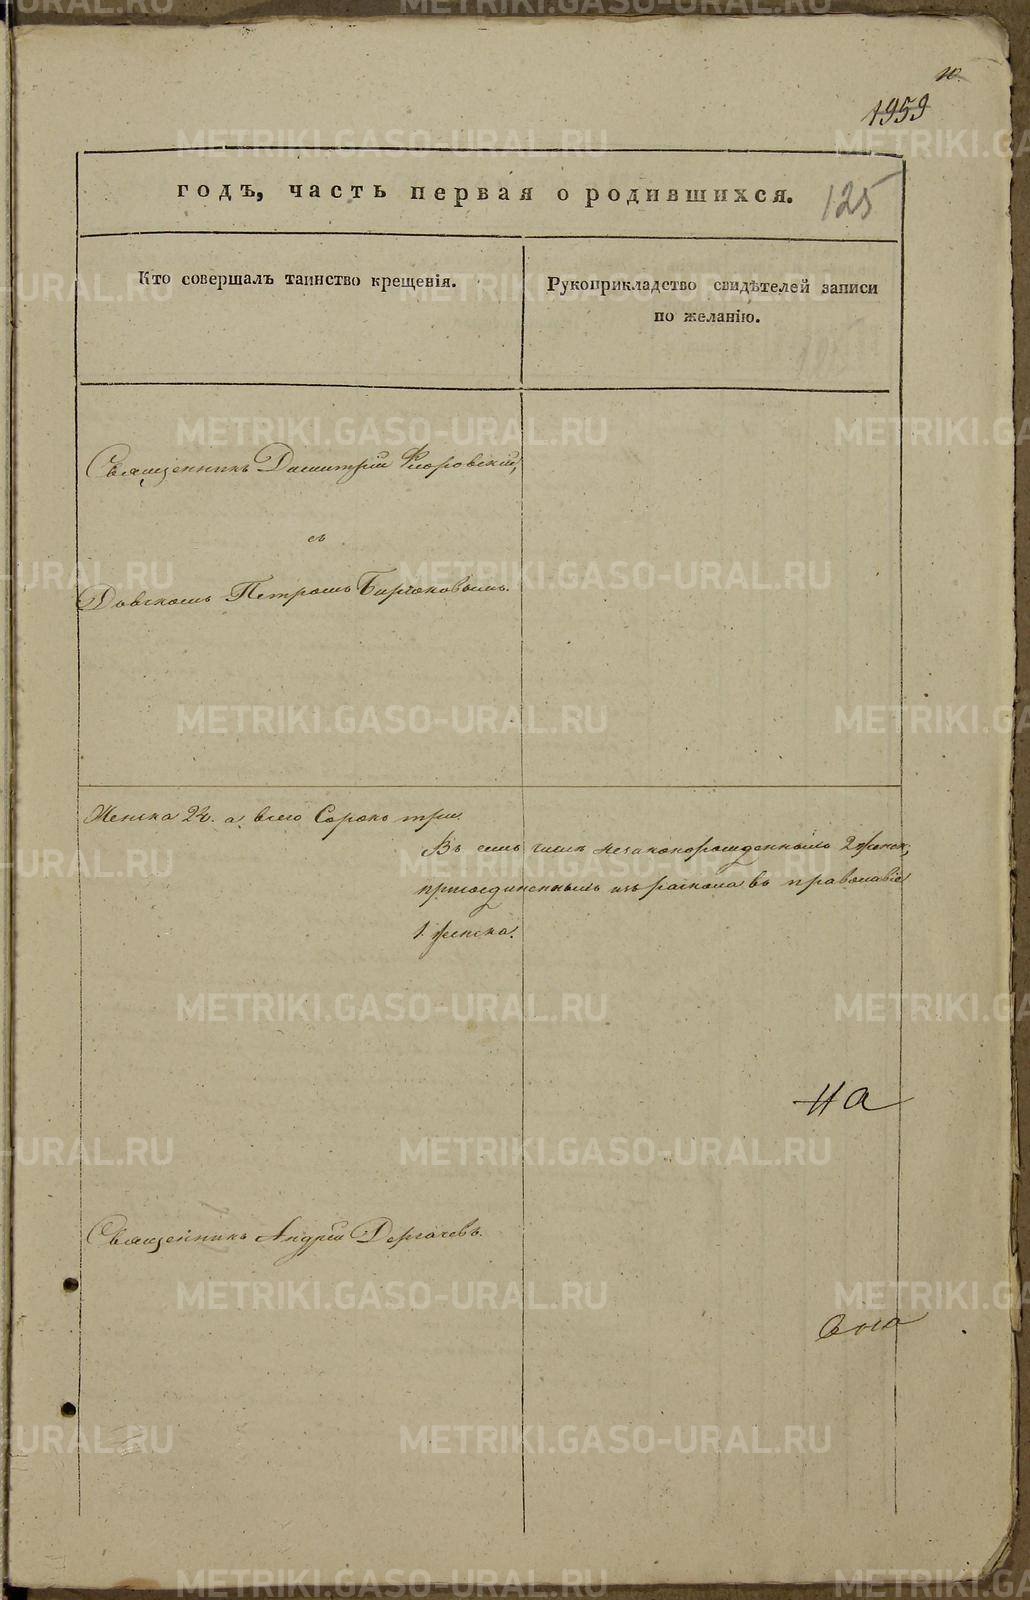 10.
1959
годъ, часть первая о родившихся. 125
Кто совершалъ таинство крещенія.
Рукоприкладство свидѣтелей записи
по желанію.
Священникъ Димитрій Флоровскій,
съ
Дьячкомъ Петромъ Бирюковымъ.
Женска 22. а всего Сорокъ три.
Въ семъ числѣ незаконорожденныхъ 2 женск,
присоединенныхъ изъ раскола въ православіе
1 женска.
Священникъ Андрей Дергачевъ.
METRIKI.GASO-URAL.RU